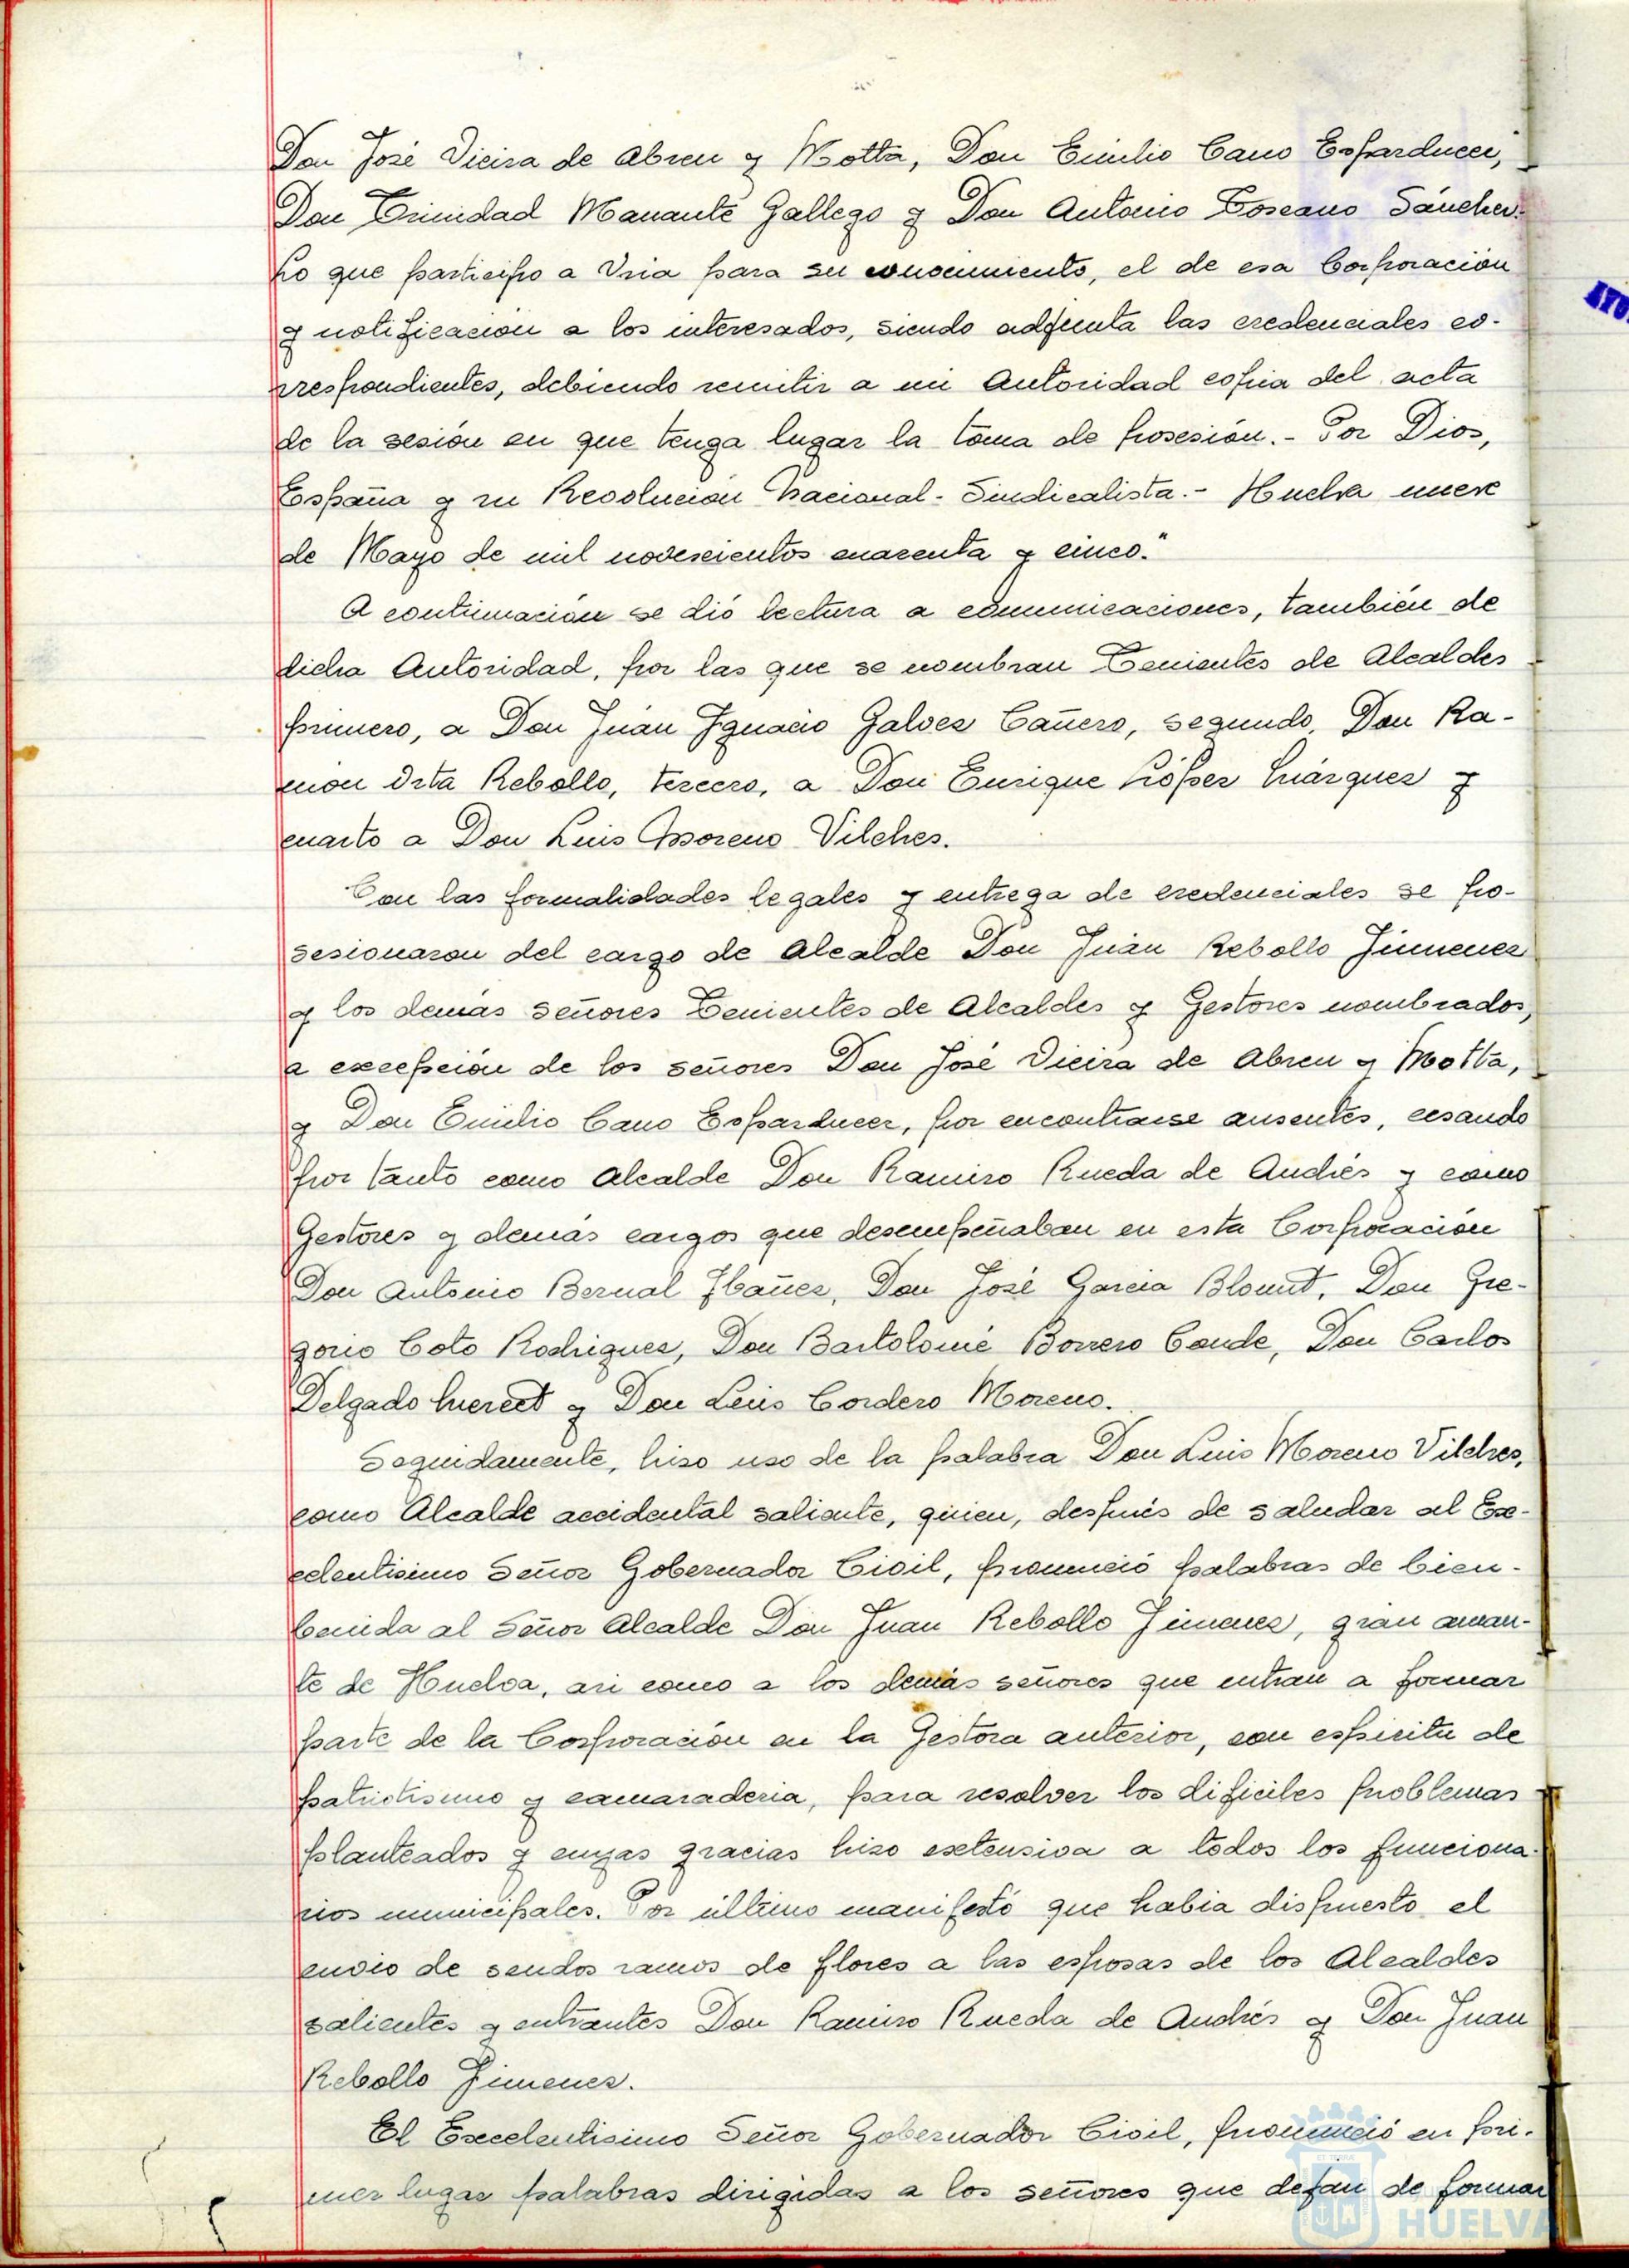 Don José Vieira de Abreu y Motta, Don Emilio Cano Esparducer,
Don Trinidad Manauté Gallego y Don Antonio Toscano Sánchez.
Lo que participo a Vsia para su conocimiento, el de esa Corporación
y notificación a los interesados, siendo adjunta las credenciales co-
rrespondientes, debiendo remitir a mi Autoridad copia del acta
de la sesión en que tenga lugar la toma de posesión.- Por Dios,
España y su Revolución Nacional-Sindicalista.- Huelva nueve
de Mayo de mil novescientos cuarenta y cinco."
A continuación se dió lectura a comunicaciones, también de
dicha Autoridad, por las que se nombran Tenientes de Alcaldes
primero, a Don Juan Ignacio Galvez Cañero, segundo, Don Ra-
món Orta Rebollo, tercero, a Don Enrique López Márquez y
cuarto a Don Luis Moreno Vilches.
Con las formalidades legales y entrega de credenciales se po-
sesionaron del cargo de Alcalde Don Juan Rebollo Jimenez
y los demás señores Tenientes de Alcaldes y Gestores nombrados,
a excepción de los señores Don José Vieira de Abreu y Motta,
y Don Emilio Cano Esparducer, por encontrarse ausentes, cesando
por tanto como Alcalde Don Ramiro Rueda de Andrés y como
Gestores y demás cargos que desempeñaban en esta Corporación
Don Antonio Bernal Ibañez, Don José Garcia Blount, Don Gre-
gorio Coto Rodriguez, Don Bartolomé Borrero Conde, Don Carlos
Delgado y Don Luis Cordero Moreno.
Seguidamente, hizo uso de la palabra Don Luis Moreno Vilches,
como Alcalde accidental saliente, quien, después de saludar al Exc-
celentisimo Señor Gobernador Civil, pronunció palabras de bien-
benida al Señor Alcalde Don Juan Rebollo Jimenez, gran aman-
te de Huelva, asi como a los demás señores que entran a formar
parte de la Corporación en la Gestora anterior, con espiritu de
patriotismo y camaraderia, para resolver los dificiles problemas
planteados y cuyas gracias hizo extensiva a todos los funciona-
rios municipales. Por último manifestó que habia dispuesto el
envio de sendos ramos de flores a las esposas de los Alcaldes
salientes y entrantes Don Ramiro Rueda de Andrés y Don Juan
Rebollo Jimenez.
El Excelentisimo Señor Gobernador Civil, pronunció en pri-
mer lugar palabras dirigidas a los señores que dejan de formar
HUELVA